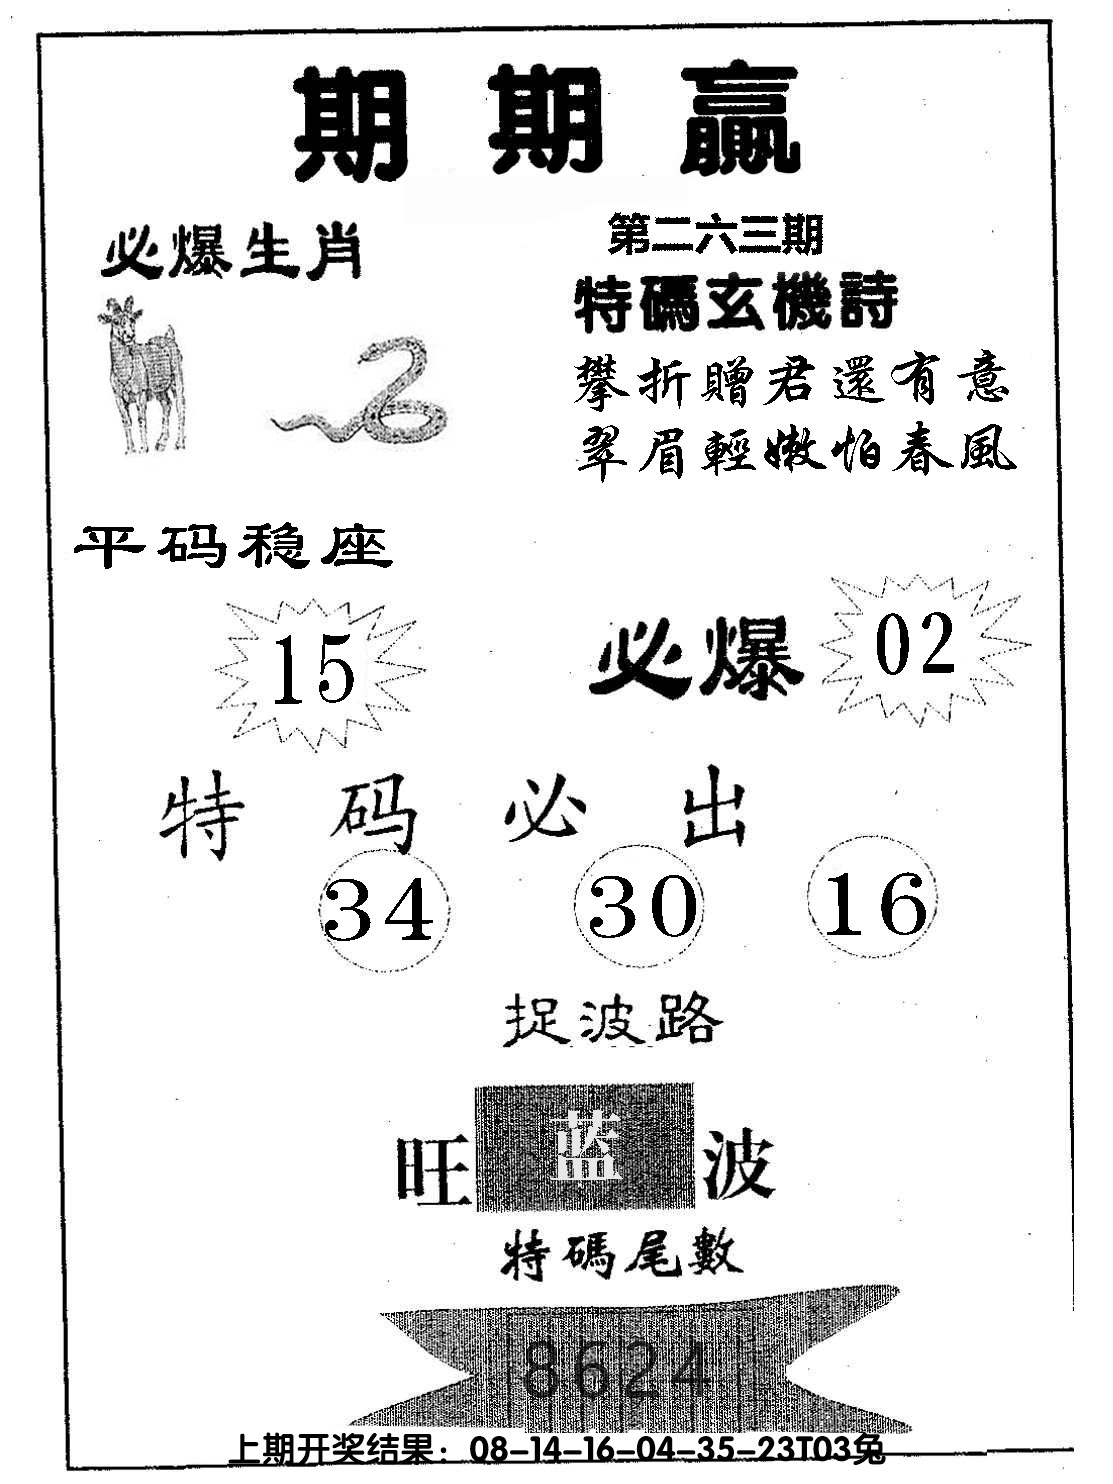 期期赢
必爆生肖
第二六三期
特碼玄機詩
攀折贈君還有意
翠眉輕嫩怕春風
平码稳座
15
必爆 02
特码必出
34 30 16
捉波路
旺 蓝 波
特碼尾數
8624
上期开奖结果：08-14-16-04-35-23T03兔